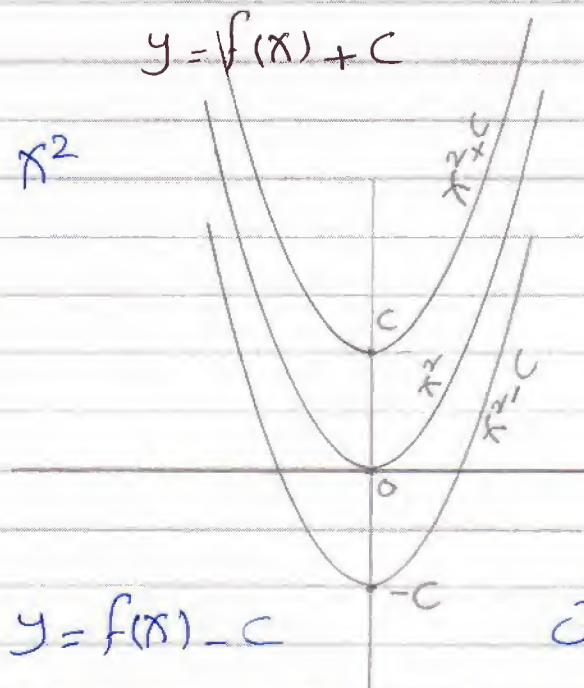 y = f(x) + C
x²
x² + C
C
x²
x² - C
0
-C
y = f(x) - C